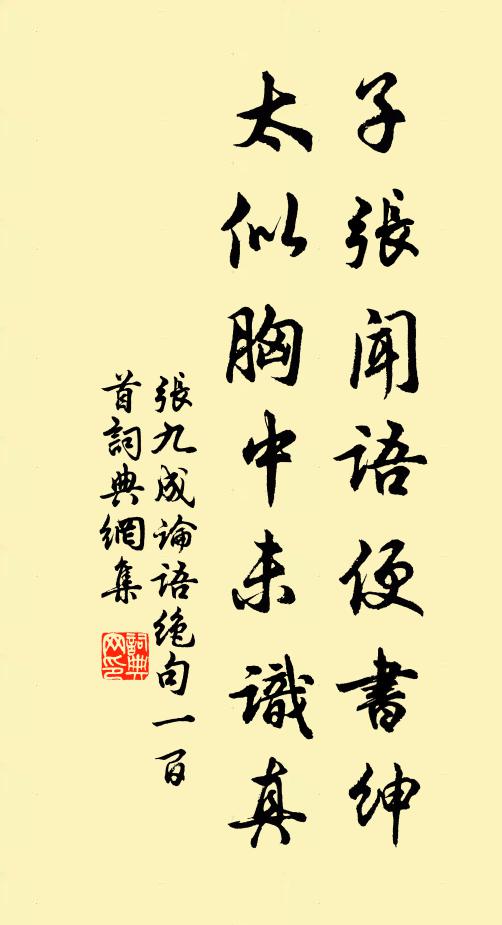 子張聞語便書紳
太似胸中未識真
張九成論語絶句一百
首詞典網集
詞典
网印